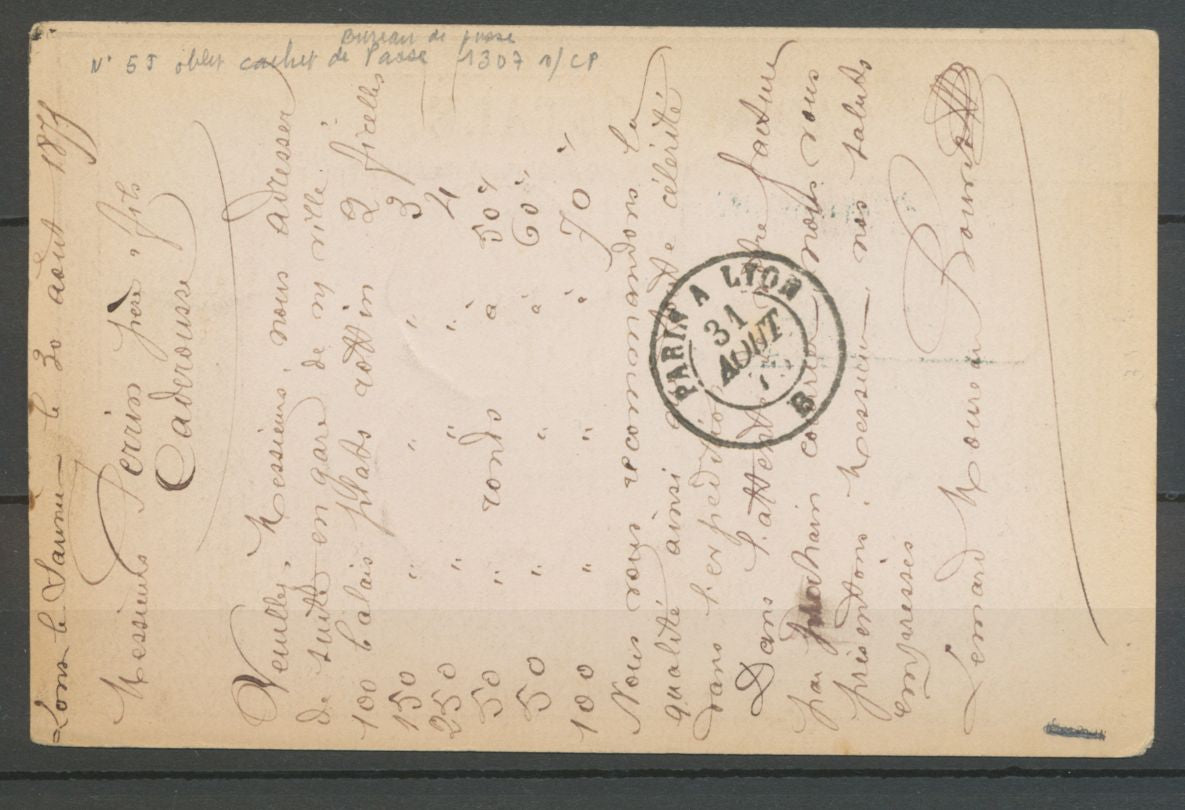 Bureau de passe
N° 55 oblit cachet de Passe 1307 s/CP
Lons le Saunier le 30 août 1875
Messieurs Perrin père & fils
Caderousse
Veuillez, Messieurs, nous adresser
de suite en gare de my ville.
100 balais plats rottin 2 ficelles
150 " " " 3
250 " " " 4
50 " ronds à 50 %
50 " " à 60 %
100 " " à 70 %
Nous vous recommandons la
qualité ainsi célérité
dans l'expédition
Dans l'attente facture
par prochain nous vous
présentons, Messieurs, nos saluts
empressés
Lemard
PARIS A LYON
31
AOUT